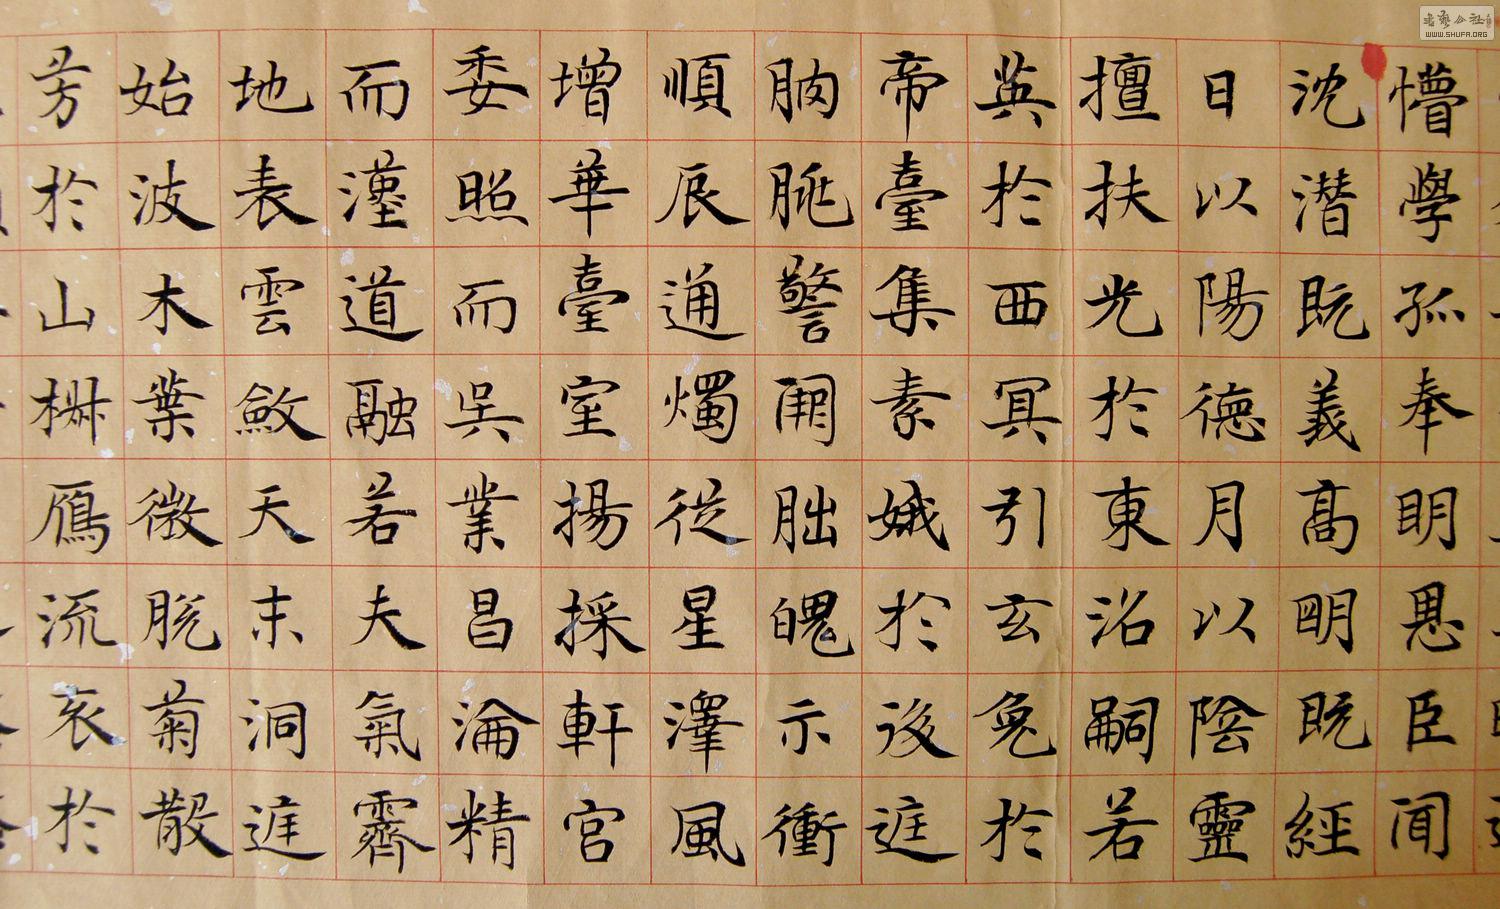 懵學孤奉明恩臣聞
沈潛既義高明既經
日以陽德月以陰靈
擅扶光於東沼嗣若
英於西冥引玄兔於
帝臺集素娥於後庭
朒朓警闕朏魄示衝
順辰通燭從星澤風
增華臺室揚採軒宮
委照而吳業昌淪精
而漢道融若夫氣霽
地表雲斂天末洞庭
始波木葉微脫菊散
芳於山椒鴈流哀於
WWW.SHUFA.ORG